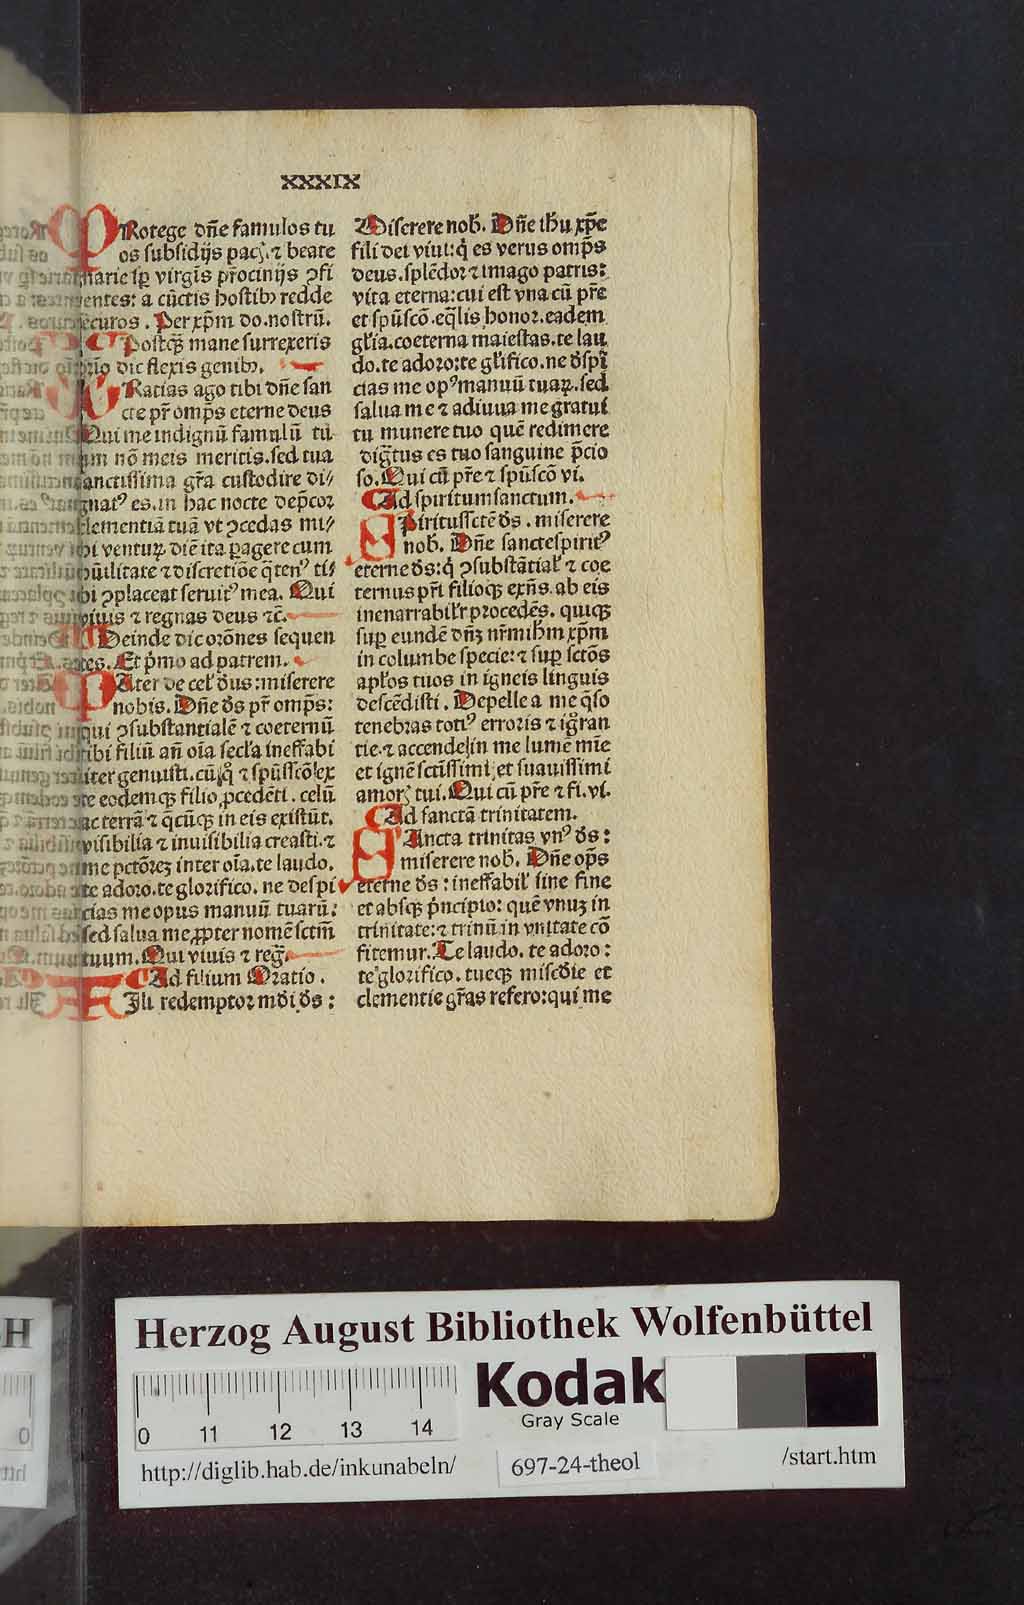 XXXIX
PRotege dn̄e famulos tu
os subsidijs pacꝭ.⁊ beate
marie sꝑ virgīs pr̄ocinijs ꝯfi
entes: a cūctis hostibꝰ redde
securos. Per xp̄m do.nostrū.
Postqᷓꝫ mane surrexeris
dic flexis genibꝰ.
GRatias ago tibi dn̄e san
cte pr̄ omp̄s eterne deus
Qui me indignū famulū tū
nō meis meritis.sed tua
sanctissima gr̄a custodire di⸗
gnatꝰ es.in hac nocte dep̄cor
clementiā tuā vt ꝯcedas mi⸗
hi venturꝫ diē ita ꝑagere cum
hūilitate ⁊ discretiōe q̄tenꝰ ti⸗
bi ꝯplaceat seruitꝰ mea. Qui
viuis ⁊ regnas deus ⁊c̄.
Deinde dic orōnes sequen
tes. Et p̄mo ad patrem.
PAter de cel' d̄us: miserere
nobis. Dn̄e d̄s pr̄ omp̄s:
qui ꝯsubstantialē ⁊ coeternū
tibi filiū añ oīa secl'a ineffabi
liter genuisti.cū q̊ ⁊ spūssc̄o ex
te eodemqꝫ filio ꝓcedēti. celū
ac terrā ⁊ qcūqꝫ in eis existūt.
visibilia ⁊ inuisibilia creasti.⁊
me pctōreꝫ inter oīa.te laudo.
te adoro.te glorifico. ne despi
cias me opus manuū tuarū:
sed salua me ꝓpter nomē sctm̄
tuum. Qui viuis ⁊ reḡ.
Ad filium Oratio.
FIli redemptor mūdi d̄s:
Miserere nob̄. Dn̄e ih̄u xp̄e
fili dei viui: q̇ es verus omp̄s
deus.splēdor ⁊ imago patris:
vita eterna: cui est vna cū pr̄e
et spūsc̄o.eq̄lis honor.eadem
gl'ia.coeterna maiestas.te lau
do.te adoro:te gl'ifico.ne d̄spi
cias me opꝰ manuū tuaꝝ.sed
salua me ⁊ adiuua me gratui
tu munere tuo quē redimere
dig̅tus es tuo sanguine p̄cio
so. Qui cū pr̄e ⁊ spūsc̄o vi.
Ad spiritum sanctum.
SPiritusscte d̄s. miserere
nob̄. Dn̄e sanctespiritꝰ
eterne d̄s:q̇ ꝯsubstātial' ⁊ coe
ternus pr̄i filioqꝫ exn̄s.ab eis
inenarrabilr̄ procedēs. quiqꝫ
suꝑ eundē dn̄ꝫ nr̄m ih̄m xp̄m
in columbe specie: ⁊ suꝑ sctōs
apl'os tuos in igneis linguis
descēdisti. Depelle a me q̄so
tenebras totiꝰ erroris ⁊ ig̊ran
tie.⁊ accende in me lumē mīe
et ignē sctīssimi et suauissimi
amorꝭ tui. Qui cū pr̄e ⁊ fi.vi.
Ad sanctā trinitatem.
SAncta trinitas vnꝰ d̄s:
miserere nob̄. Dn̄e op̄s
eterne d̄s: ineffabil' sine fine
et absqꝫ p̄ncipio: quē vnuꝫ in
trinitate: ⁊ trinū in vnitate cō
fitemur. Te laudo. te adoro:
te glorifico. tueqꝫ misc̄die et
clementie gr̄as refero:qui me
Herzog August Bibliothek Wolfenbüttel
Kodak
Gray Scale
0 11 12 13 14
http://diglib.hab.de/inkunabeln/
697-24-theol
/start.htm